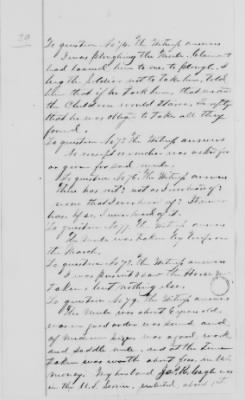 20
To question No 74. The Witness answers
I was ploughing the Mule. Claimant
had loaned him to me to plough. I
beg the soldiers not to take him, told
him that if he took him, that me and
the Children would starve. he said
that he was obliged to take all they
found.
To question No 75 The Witness answers
No receipt or voucher was asked for
or given for said mule.
To question No 76. The Witness answers
There was not; not as I
none that I ever knew of;
base if so, I never heard of it.
To question No 77. The Witness answers
The Mule was taken by troops on
the March.
To question No 78. The Witness answers
I was present saw the Horse
taken, but nothing else.
To question No 79. The Witness answers
The Mule was about 6 years old,
was in good order was sound and
of medium size was a good work
and saddle mule, and at the time
taken was worth about in
money. My husband was
in the U.S. Service, enlisted, about